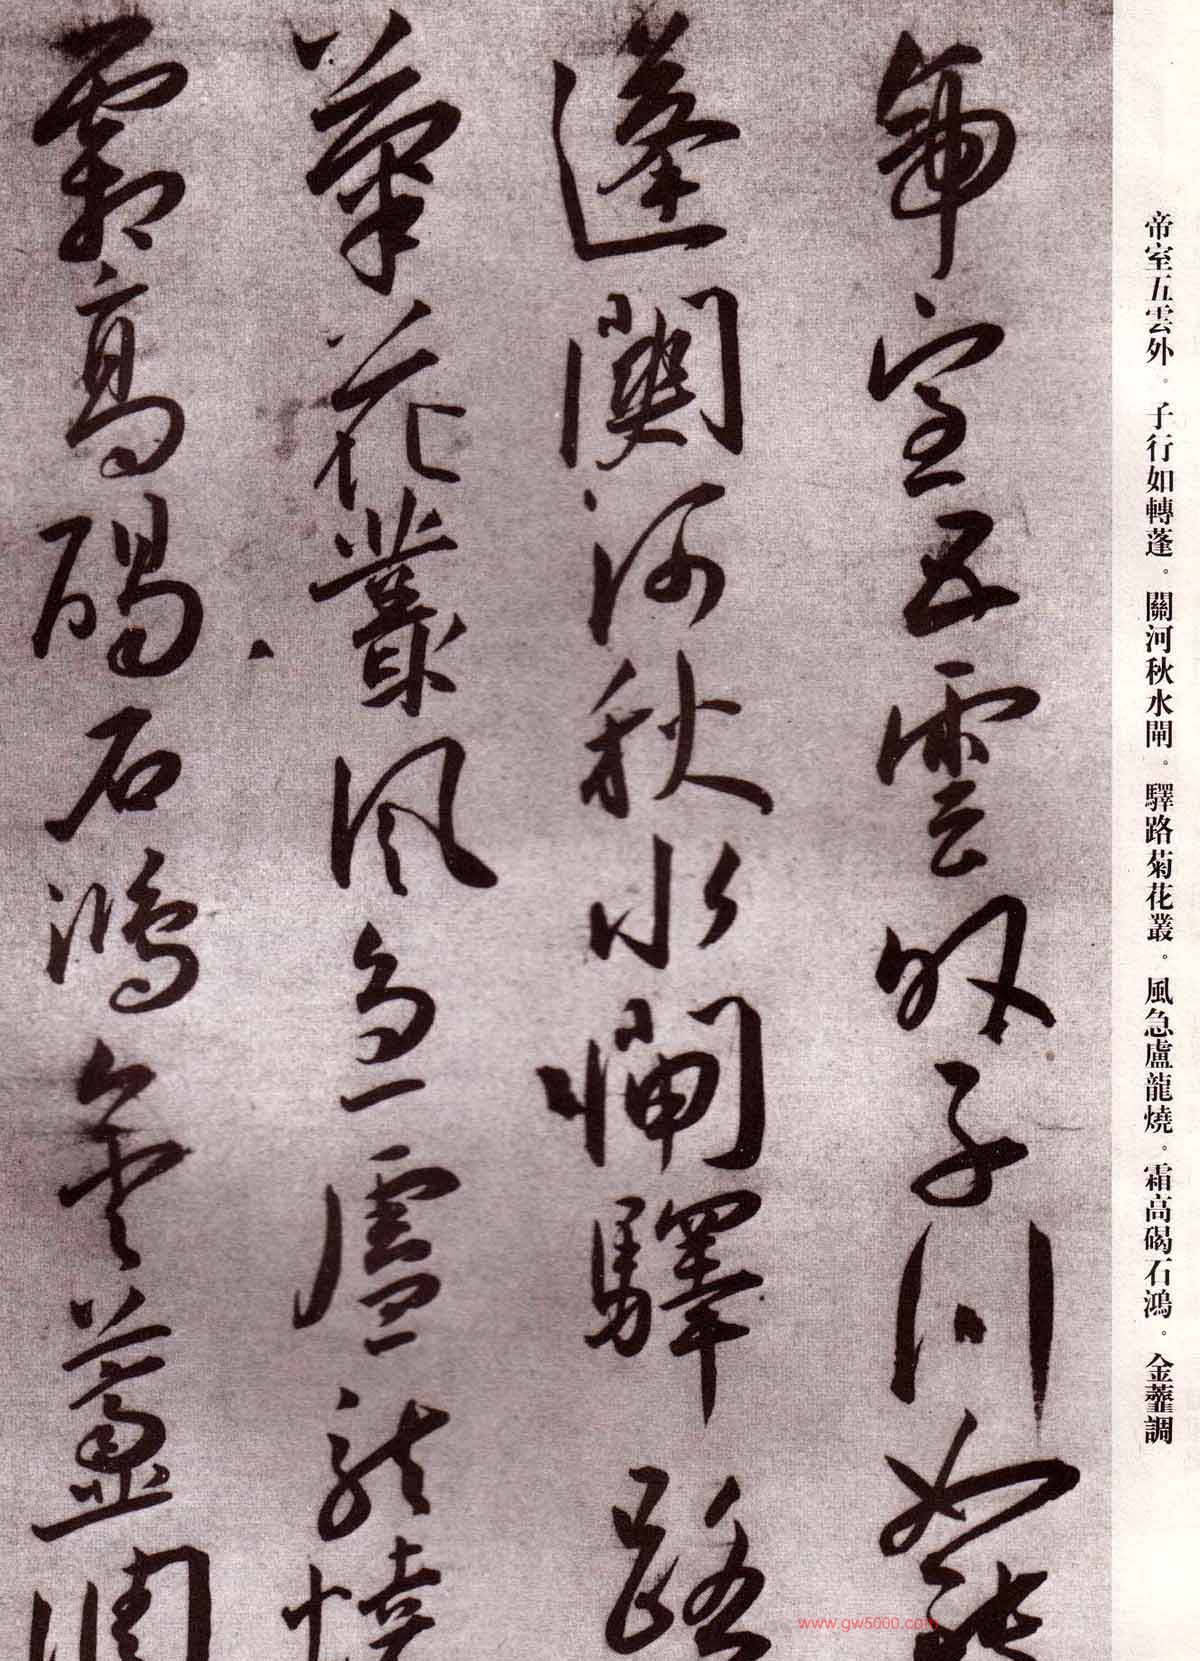 帝室五雲外。子行如轉蓬。關河秋水閘。驛路菊花叢。風急盧龍燒。霜高碣石鴻。金虀調
帝室五雲外子行如轉
蓬關河秋水閘驛路
菊花叢風急盧龍燒
霜高碣石鴻金虀調
www.gw5000.com